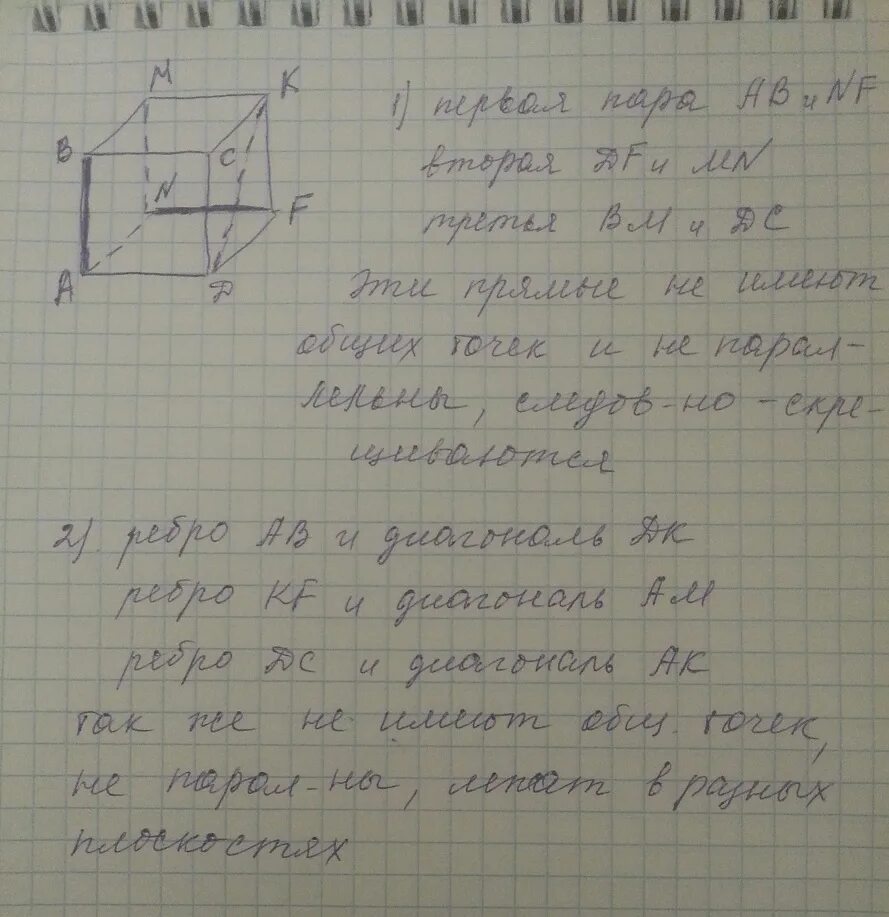 M
K
B
C
N
F
A
D
1) первая пара AB и NF
вторая DF и MN
третья BM и DC
Эти прямые не имеют
общих точек и не парал-
лельны, следов-но - скре-
щиваются
2) ребро AB и диагональ DK
ребро KF и диагональ AM
ребро DC и диагональ AK
так же не имеют общ. точек,
не парал-ны, лежат в разных
плоскостях